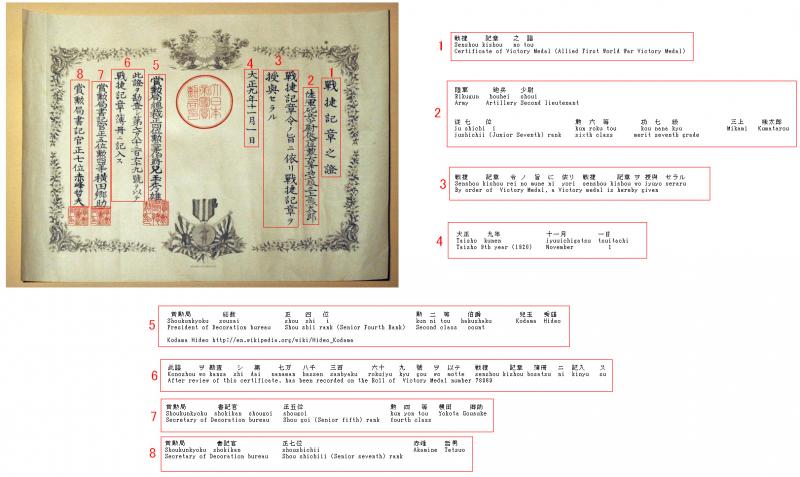 戦捷記章之證
戦捷記章令ノ旨ニ依リ戦捷記章ヲ
授與セラル
大正九年十一月一日
賞勲局総裁正四位勲二等伯爵兒玉秀雄
戦捷記章簿冊ニ記入ス
賞勲局書記官正五位勲四等横田郷助
賞勲局書記官正七位赤峰
大日本帝國賞勲局印
1
2
3
4
5
6
7
8
1
戦捷 記章 之 證
Senshou kishou no tou
Certificate of Victory Medal (Allied First World War Victory Medal)
2
陸軍 砲兵 少尉
Rikugun houhei shoui
Army Artillery Second lieutenant
従七位 勲六等 功七級 三上 棟太郎
ju shichi i kun roku tou kou nana kyu Mikami Kumatarou
jushichii (Junior Seventh) rank sixth class merit seventh grade
3
戦捷 記章 令ノ 旨 に 依り 戦捷 記章 ヲ 授與 セラル
Senshou kishou rei no mune ni yori senshou kishou wo iyuyo seraru
By order of Victory Medal, a Victory medal is hereby given
4
大正 九年 十一月 一日
Taisho kunen iyuuichigatsu tsuitachi
Taisho 9th year (1920) November 1
5
賞勲局 総裁 正 四 位 勲 二 等 伯爵 兒玉 秀雄
Shoukunkyoku sousai shou shi i kun ni tou hakushaku Kodama Hideo
President of Decoration bureau Shou shii rank (Senior Fourth Rank) Second class count Kodama Hideo
Kodama Hideo http://en.wikipedia.org/wiki/Hideo_Kodama
6
此證 ヲ 勘査 シ 第 七万 八千 三百 六十 九 號 ヲ 以テ 戦捷 記章 簿冊 ニ 記入 ス
Konozhou wo kansa shi dai nanaman hassen sanbyaku rokujyu kyu gou wo motte senshou kishou bosatsu ni kinyu su
After review of this certificate, has been recorded on the Roll of Victory Medal number 78369
7
賞勲局 書記官 正五位 勲 四 等 横田 郷助
Shoukunkyoku shokikan shougoi kun yon tou Yokota Gousuke
Secretary of Decoration bureau Shou goi (Senior fifth) rank fourth class
8
賞勲局 書記官 正七位 赤峰
Shoukunkyoku shokikan shoushichii Akamine Tetsuo
Secretary of Decoration bureau Shou shichii (Senior seventh) rank